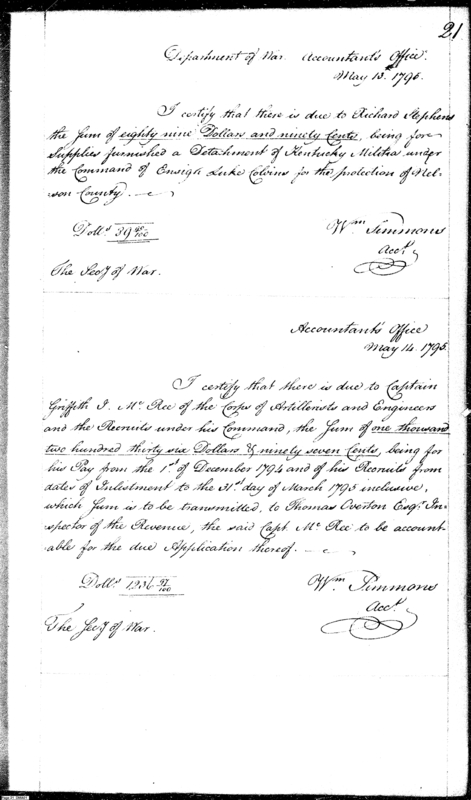 21
Department of War. Accountant's Office.
May 13th 1795.
I certify that there is due to Richard Stephens
the Sum of eighty nine Dollars and ninety Cents, being for
Supplies furnished a Detachment of Kentucky Militia under
the Command of Ensign Luke Colvins for the protection of Nel-
son County.
Dolls 89 90/100
Wm Simmons
Acct.
The Secy of War.
Accountant's Office
May 14. 1795.
I certify that there is due to Captain
Griffith J. Mc Ree of the Corps of Artillerists and Engineers
and the Recruits under his Command, the Sum of one thousand
two hundred thirty six Dollars & ninety seven Cents, being for
his Pay from the 1st of December 1794 and of his Recruits from
dates of Inlistment to the 31st day of March 1795 inclusive,
which Sum is to be transmitted, to Thomas Overton Esqr. In-
spector of the Revenue, the said Capt. Mc Ree to be account-
able for the due Application thereof.
Dolls 1236 97/100
Wm Simmons
Acct.
The Secy of War.